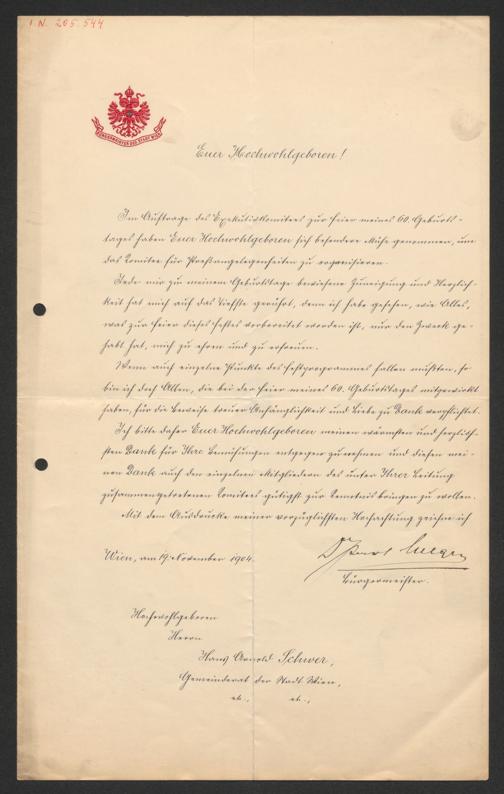 I.N. 205.544
BÜRGERMEISTER DER STADT WIEN
Euer Hochwohlgeboren!
Im Auftrage des Exekutivkomitees zur Feier meines 60. Geburts-
tages haben Euer Hochwohlgeboren sich besondere Mühe genommen, um
das Komitee für Preßangelegenheiten zu organisieren.
Jede mir zu meinem Geburtstage bewiesene Zuneigung und Herzlich-
keit hat mich auf das Tiefste gerührt, denn ich habe gesehen, wie Alles,
was zur Feier dieses Festes vorbereitet worden ist, nur den Zweck ge-
habt hat, mich zu ehren und zu erfreuen.
Wenn auch einzelne Punkte des Festprogrammes fallen mußten, so
bin ich doch Allen, die bei der Feier meines 60. Geburtstages mitgewirkt
haben, für die Beweise treuer Anhänglichkeit und Liebe zu Dank verpflichtet.
Ich bitte daher Euer Hochwohlgeboren meinen wärmsten und herzlich-
sten Dank für Ihre Bemühungen entgegen zu nehmen und diesen mei-
nen Dank auch den einzelnen Mitgliedern des unter Ihrer Leitung
zusammengetretenen Komitees gütigst zur Kenntnis bringen zu wollen.
Mit dem Ausdrucke meiner vorzüglichsten Hochachtung zeichne ich
Wien, am 19. November 1904.
Dr Karl Lueger
Bürgermeister.
Hochwohlgeboren
Herrn
Hans Arnold Schwer,
Gemeinderat der Stadt Wien,
etc., etc.,